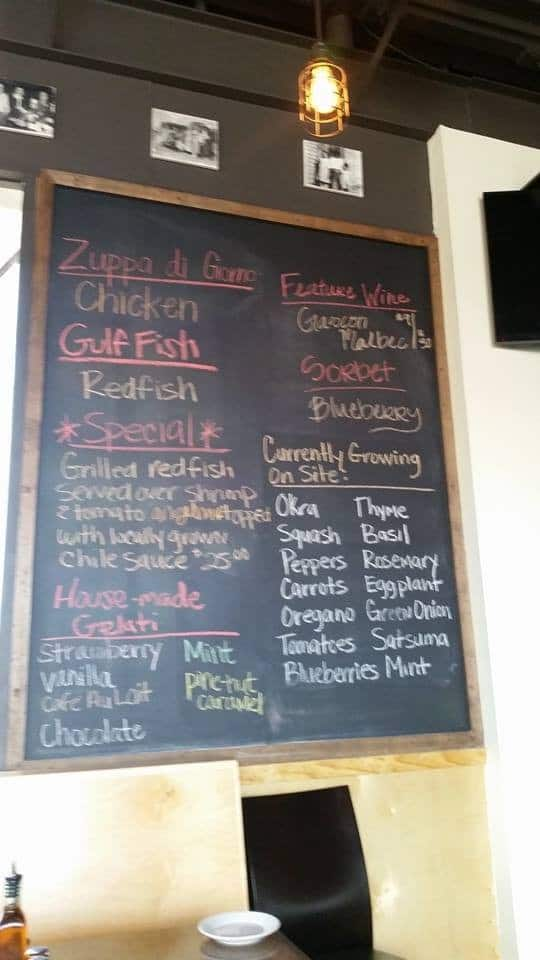 Zuppa di Giorno
Chicken
Gulf Fish
Redfish
*Special*
Grilled redfish
Served over shrimp
& tomato topped
with locally grown
Chile Sauce $25.00
House-made
Gelati
Strawberry
Vanilla
Café Au Lait
Chocolate
Mint
pine-nut
caramel
Feature Wine
Malbec
Sorbet
Blueberry
Currently Growing
On Site:
Okra Thyme
Squash Basil
Peppers Rosemary
Carrots Eggplant
Oregano Green Onion
Tomatoes Satsuma
Blueberries Mint